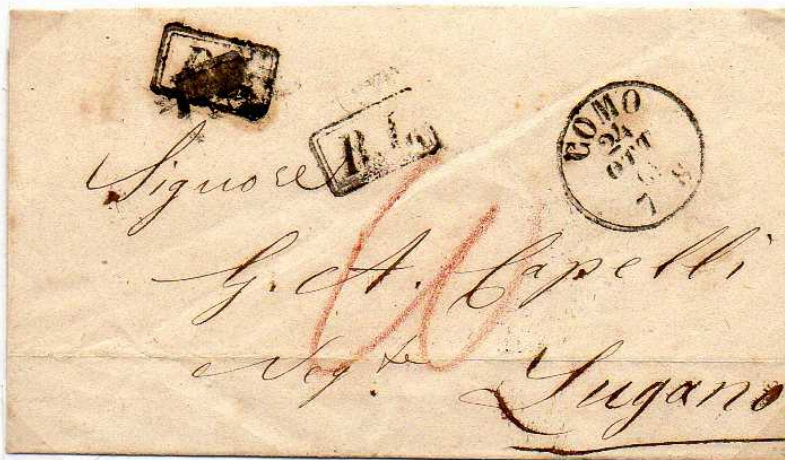 R.L.
COMO
24
OTT
7 S
Signore
G. A. Capelli
Neg.te
Lugano